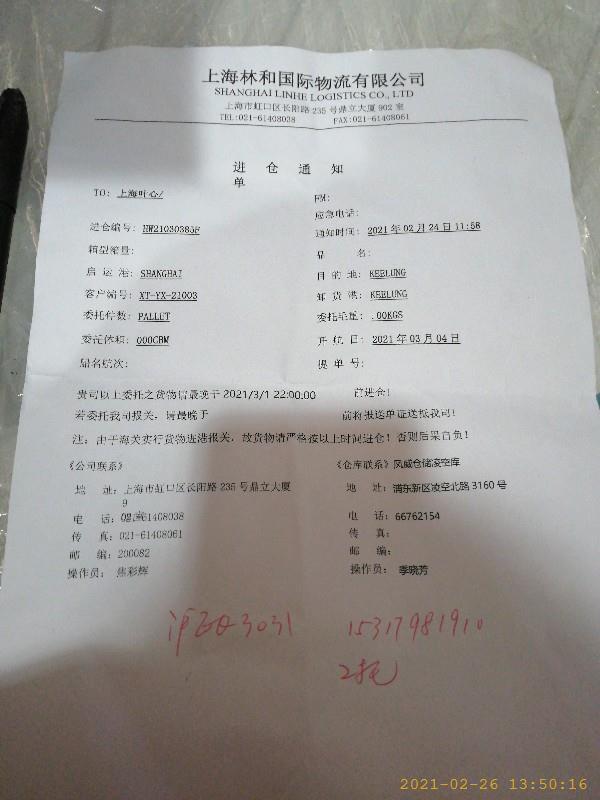 上海林和国际物流有限公司
SHANGHAI LINHE LOGISTICS CO., LTD
上海市虹口区长阳路 235 号鼎立大厦 902 室
TEL:021-61408038 FAX:021-61408061
进仓通知
单
TO: 上海叶心/ FM:
应急电话:
进仓编号: HW21030385F 通知时间: 2021 年 02 月 24 日 11:58
箱型箱量: 品 名:
启 运 港: SHANGHAI 目 的 地: KEELUNG
客户编号: XT-YX-21003 卸 货 港: KEELUNG
委托件数: PALLET 委托毛重: .00KGS
委托体积: 000CBM 开 航 日: 2021 年 03 月 04 日
船名航次: 提 单 号:
贵司以上委托之货物请最晚于 2021/3/1 22:00:00 前进仓!
若委托我司报关, 请最晚于 前将报送单证送抵我司!
注: 由于海关实行货物进港报关, 故货物请严格按以上时间进仓! 否则后果自负!
《公司联系》 《仓库联系》凤威仓储凌空库
地 址: 上海市虹口区长阳路 235 号鼎立大厦 地 址: 浦东新区凌空北路 3160 号
9
电 话: 021-61408038 电 话: 66762154
传 真: 021-61408061 传 真:
邮 编: 200082 邮 编:
操作员: 焦彩辉 操作员: 季晓芳
3031 15317981910
2托
2021-02-26 13:50:16